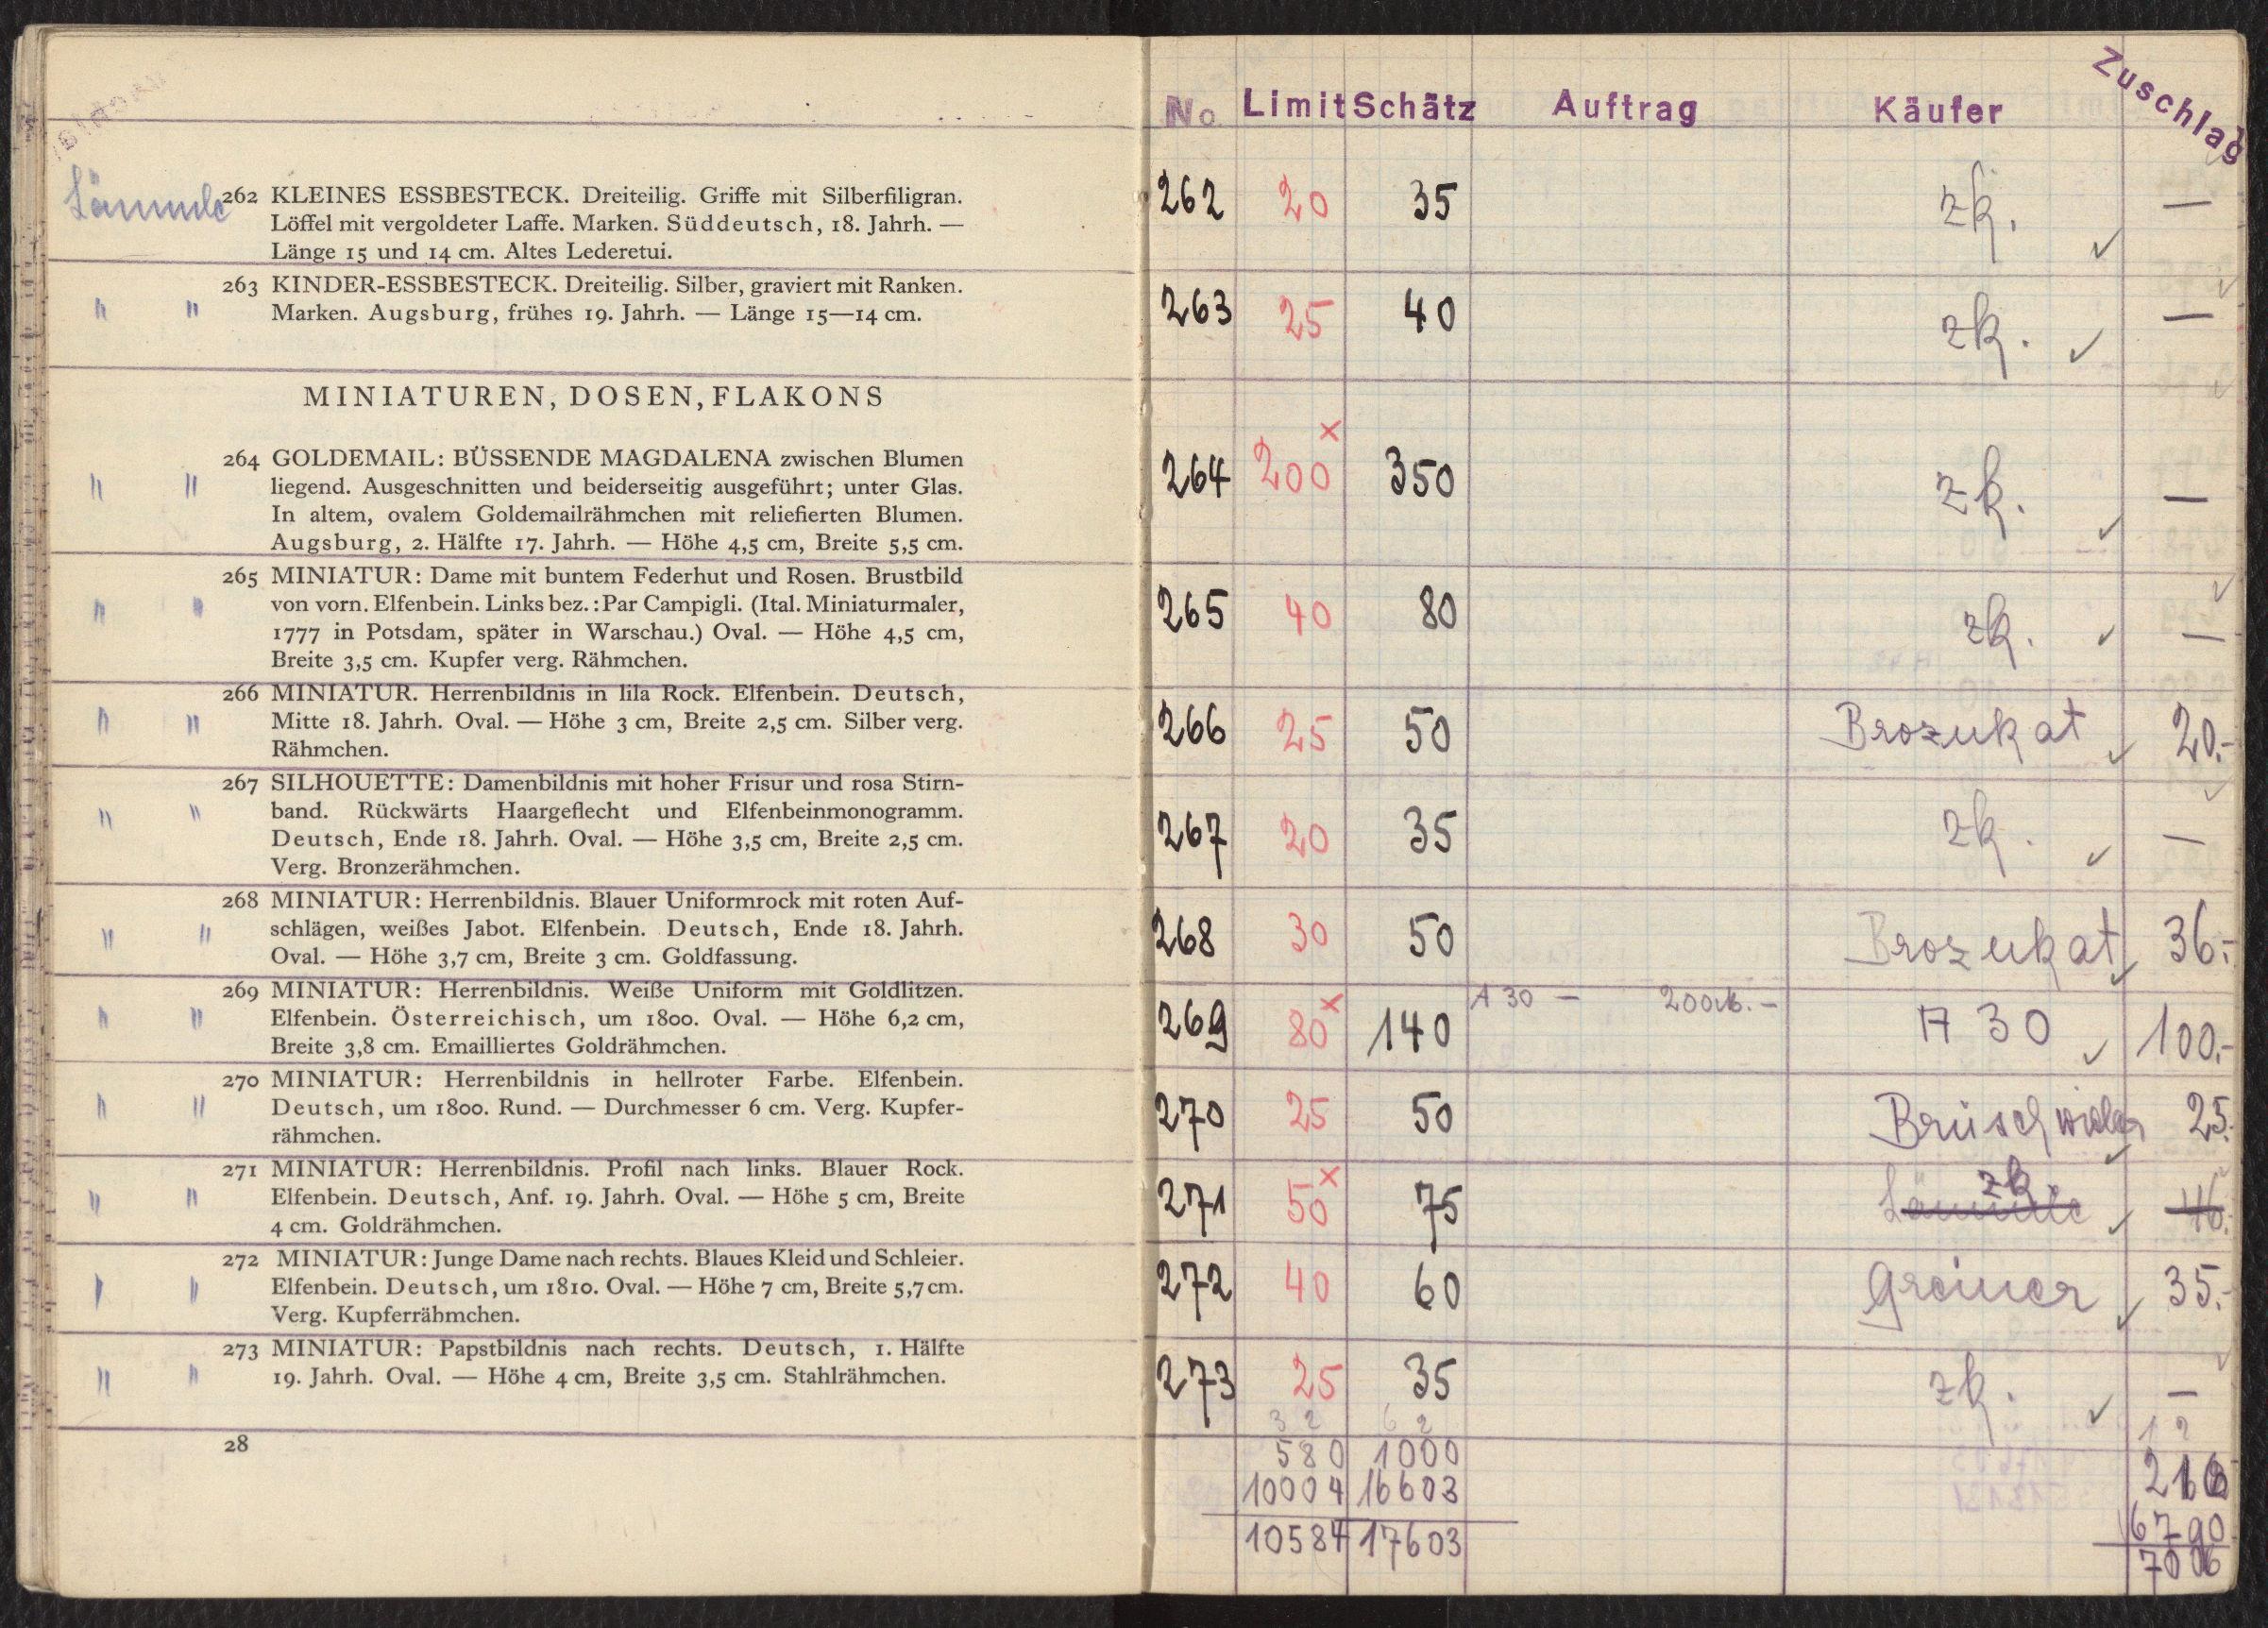 Lämmle 262 KLEINES ESSBESTECK. Dreiteilig. Griffe mit Silberfiligran.
Löffel mit vergoldeter Laffe. Marken. Süddeutsch, 18. Jahrh. —
Länge 15 und 14 cm. Altes Lederetui.
" " 263 KINDER-ESSBESTECK. Dreiteilig. Silber, graviert mit Ranken.
Marken. Augsburg, frühes 19. Jahrh. — Länge 15—14 cm.
MINIATUREN, DOSEN, FLAKONS
264 GOLDEMAIL: BÜSSENDE MAGDALENA zwischen Blumen
" " liegend. Ausgeschnitten und beiderseitig ausgeführt; unter Glas.
In altem, ovalem Goldemailrähmchen mit reliefierten Blumen.
Augsburg, 2. Hälfte 17. Jahrh. — Höhe 4,5 cm, Breite 5,5 cm.
265 MINIATUR: Dame mit buntem Federhut und Rosen. Brustbild
" " von vorn. Elfenbein. Links bez.: Par Campigli. (Ital. Miniaturmaler,
1777 in Potsdam, später in Warschau.) Oval. — Höhe 4,5 cm,
Breite 3,5 cm. Kupfer verg. Rähmchen.
266 MINIATUR. Herrenbildnis in lila Rock. Elfenbein. Deutsch,
" " Mitte 18. Jahrh. Oval. — Höhe 3 cm, Breite 2,5 cm. Silber verg.
Rähmchen.
267 SILHOUETTE: Damenbildnis mit hoher Frisur und rosa Stirn-
" " band. Rückwärts Haargeflecht und Elfenbeinmonogramm.
Deutsch, Ende 18. Jahrh. Oval. — Höhe 3,5 cm, Breite 2,5 cm.
Verg. Bronzerähmchen.
268 MINIATUR: Herrenbildnis. Blauer Uniformrock mit roten Auf-
" " schlägen, weißes Jabot. Elfenbein. Deutsch, Ende 18. Jahrh.
Oval. — Höhe 3,7 cm, Breite 3 cm. Goldfassung.
269 MINIATUR: Herrenbildnis. Weiße Uniform mit Goldlitzen.
" " Elfenbein. Österreichisch, um 1800. Oval. — Höhe 6,2 cm,
Breite 3,8 cm. Emailliertes Goldrähmchen.
270 MINIATUR: Herrenbildnis in hellroter Farbe. Elfenbein.
" " Deutsch, um 1800. Rund. — Durchmesser 6 cm. Verg. Kupfer-
rähmchen.
271 MINIATUR: Herrenbildnis. Profil nach links. Blauer Rock.
" " Elfenbein. Deutsch, Anf. 19. Jahrh. Oval. — Höhe 5 cm, Breite
4 cm. Goldrähmchen.
272 MINIATUR: Junge Dame nach rechts. Blaues Kleid und Schleier.
" " Elfenbein. Deutsch, um 1810. Oval. — Höhe 7 cm, Breite 5,7 cm.
Verg. Kupferrähmchen.
273 MINIATUR: Papstbildnis nach rechts. Deutsch, 1. Hälfte
" " 19. Jahrh. Oval. — Höhe 4 cm, Breite 3,5 cm. Stahlrähmchen.
28
No Limit Schätz Auftrag Käufer Zuschlag
262 20 35 zk. ✓ —
263 25 40 zk. ✓ —
264 200 x 350 zk. ✓ —
265 40 80 zk. ✓ —
266 25 50 Brozukat ✓ 20.-
267 20 35 zk. ✓ —
268 30 50 Brozukat ✓ 36.-
A 30 — 200 —
269 80 x 140 A 30 ✓ 100.-
270 25 50 Brüschwiler ✓ 25.-
zk.
271 50 x 75 Lämmle ✓ 46.-
272 40 60 Greiner ✓ 35.-
273 25 35 zk. ✓ —
3 2 6 2 1 2
580 1000 216
10004 16603 6790
10584 17603 7006